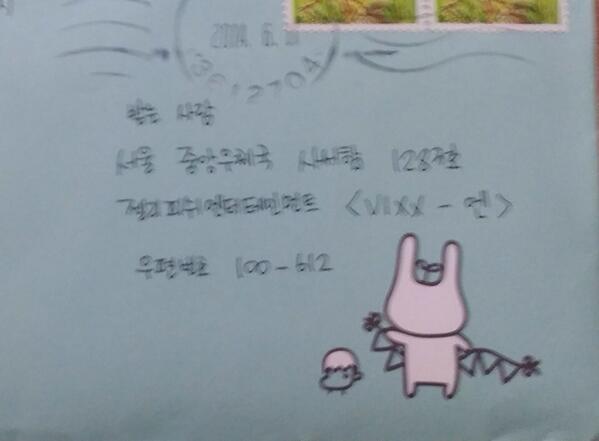 2014. 6.
받는 사람
서울 중앙우체국 사서함 1287호
젤리피쉬엔터테인먼트 <VIXX - 엔>
우편번호 100-612